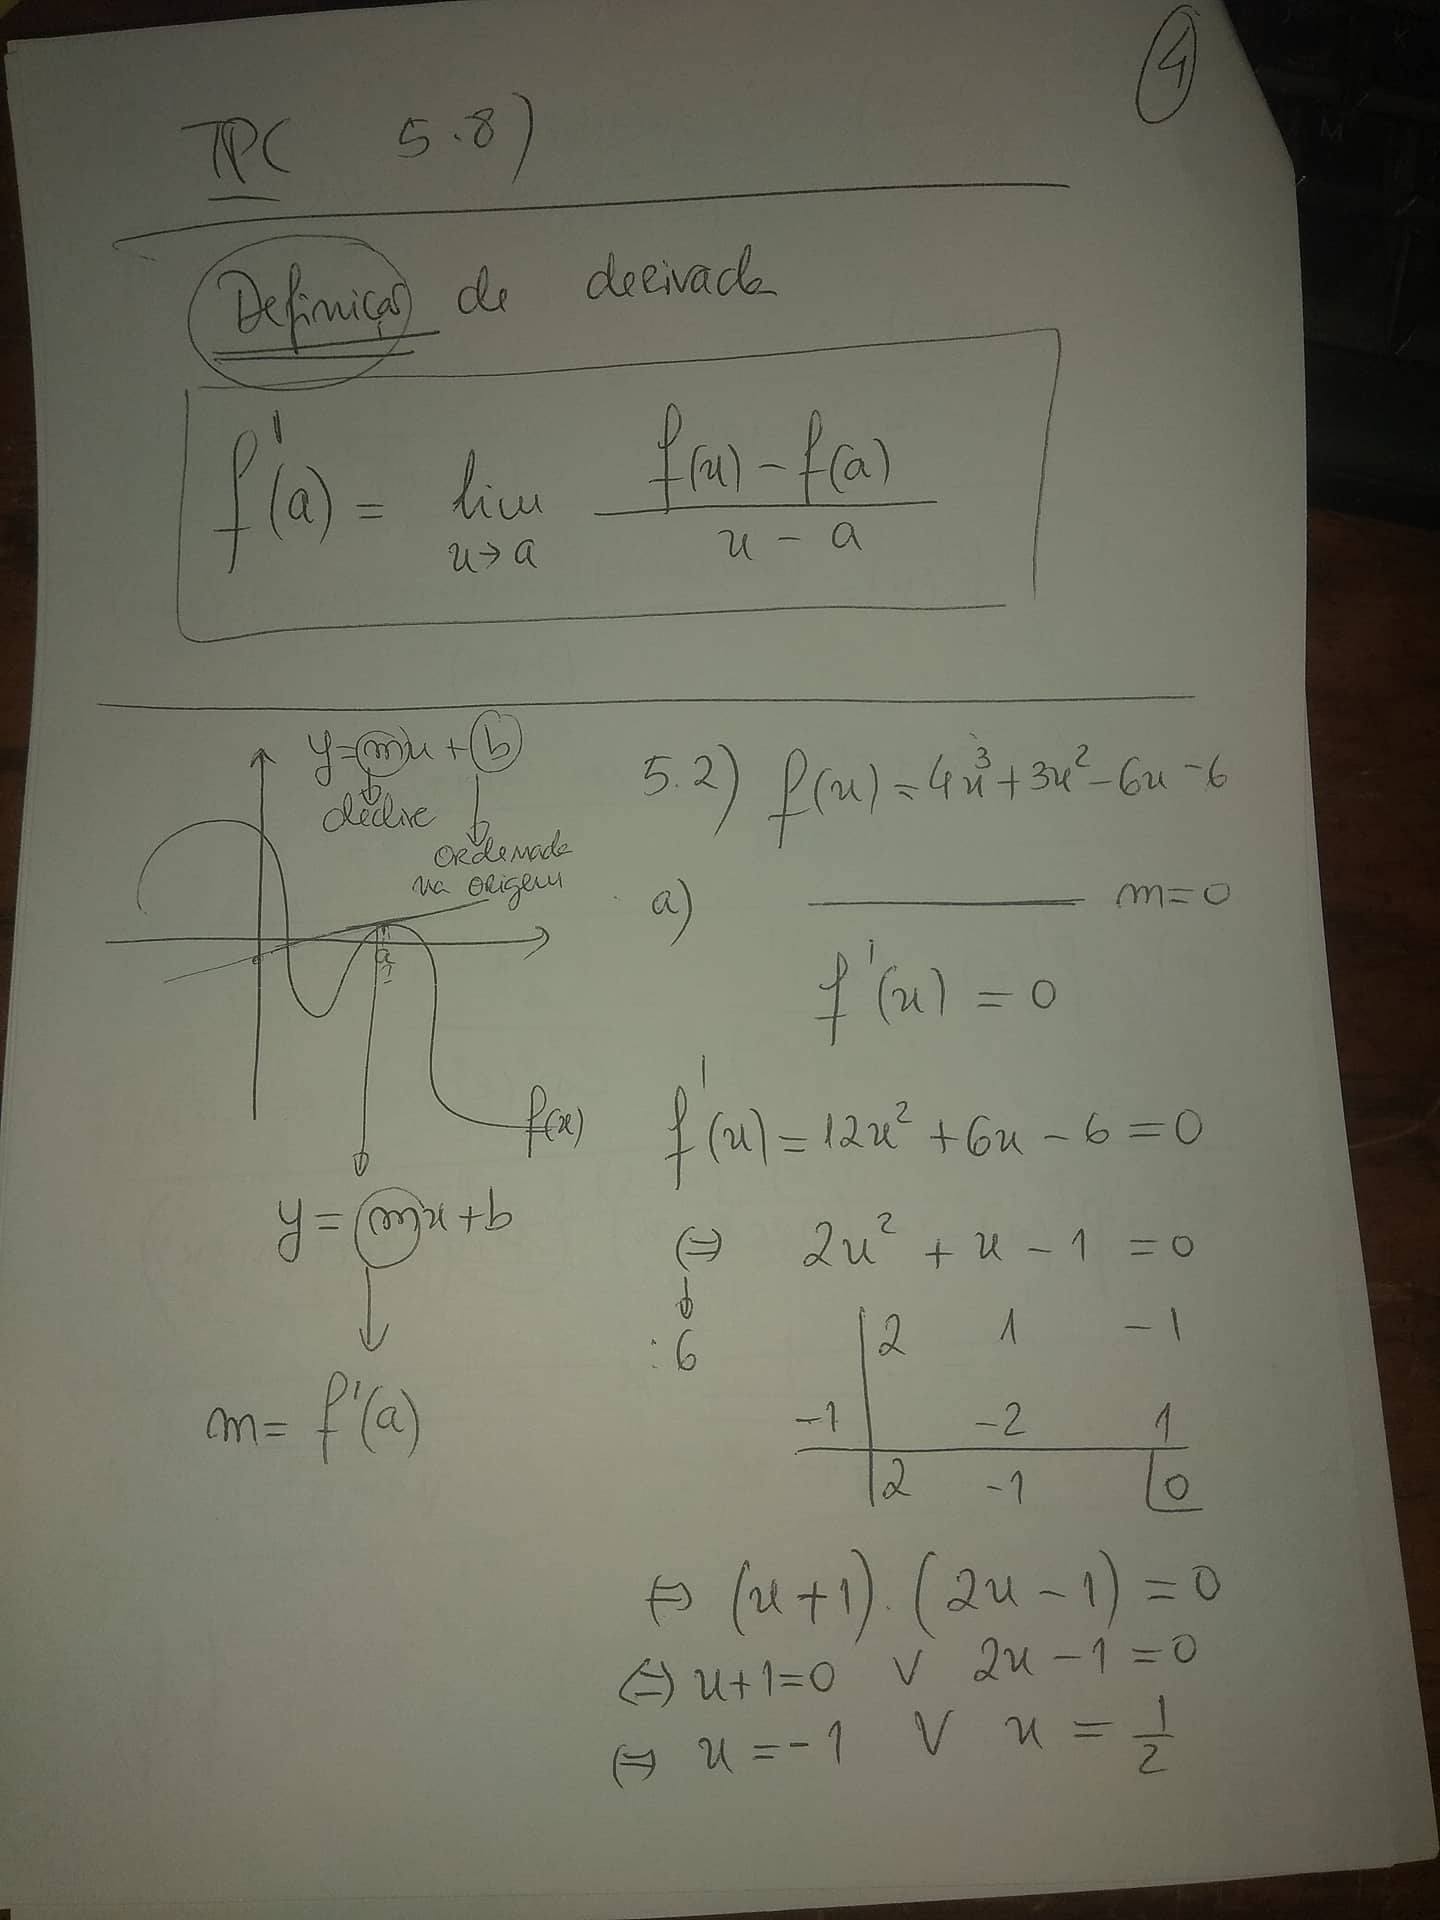 4
TPC 5.8)
Definição de derivada
f'(a) = lim x→a f(x) - f(a) / x - a
y = mx + b
declive
ordenada
na origem
a
f(x)
y = mx + b
m = f'(a)
5.2) f(x) = 4x³ + 3x² - 6x - 6
a) m = 0
f'(x) = 0
f'(x) = 12x² + 6x - 6 = 0
⇔ 2x² + x - 1 = 0
:6
2 1 -1
-1 -2 1
2 -1 0
⇔ (x+1).(2x-1) = 0
⇔ x+1=0 ∨ 2x-1=0
⇔ x = -1 ∨ x = 1/2